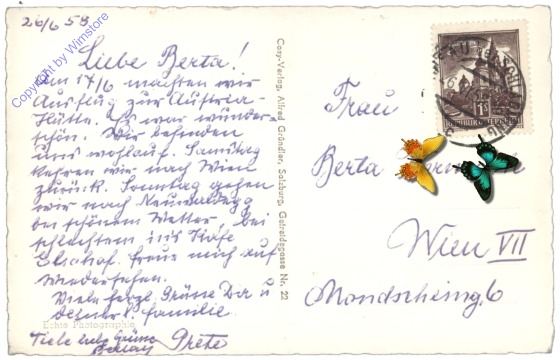 26/6 58
Liebe Berta!
Am 17/6 machten wir
Ausflug zur Austria-
Hütte. Es war wunder-
schön. Wir befinden
uns wohlauf. Samstag
kehren wir nach Wien
zurück. Sonntag gehen
wir nach Neuwaldegg
bei schönem Wetter, bei
schlechtem ins Kafe
Freue mich auf
Wiedersehen.
Viele herzl. Grüße Dir u
deiner Familie
Grete
Viele liebe Grüße
Echte Photographie
Cosy-Verlag, Alfred Gründler, Salzburg, Getreidegasse Nr. 22
Frau
Berta
Wien VII
Mondscheing. 6
Copyright by Wimstore